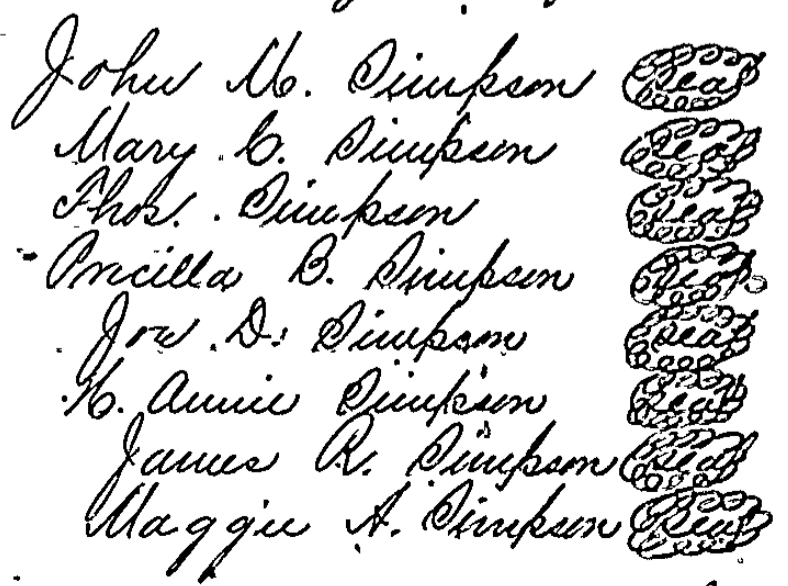 John M. Simpson Seal
Mary C. Simpson Seal
Thos. Simpson Seal
Pricilla B. Simpson Seal
Jou D. Simpson Seal
H. Annie Simpson Seal
James R. Simpson Seal
Maggie A. Simpson Seal